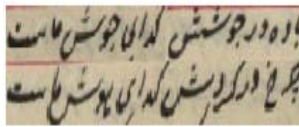 باده در جوشش گدای جوش ماست
چرخ در گردش گدای هوش ماست